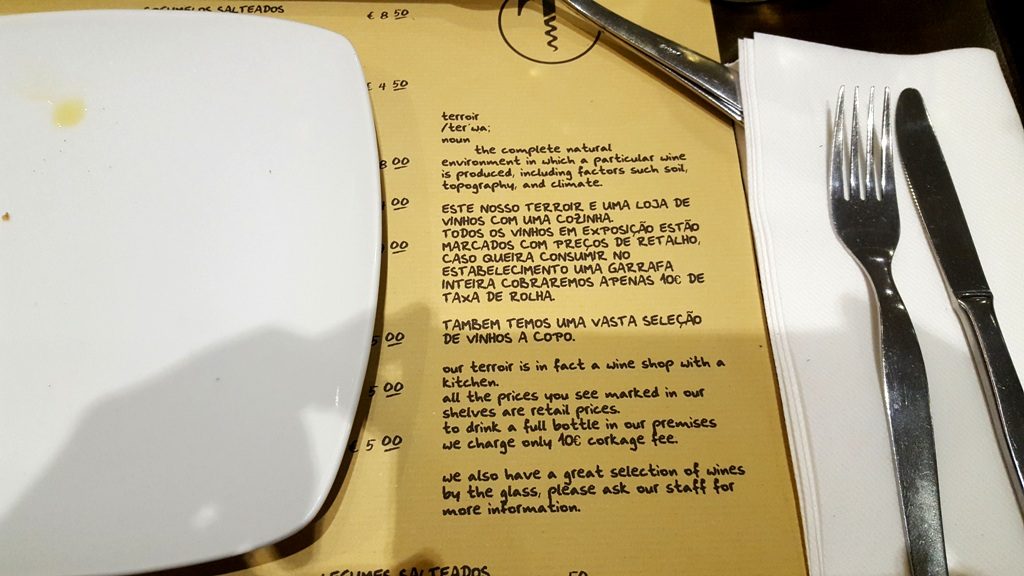 SALTEADOS
€ 8 50
4 50
8 00
00
00
00
5 00
€ 5 00
terroir
/ter'wa:
noun
the complete natural
environment in which a particular wine
is produced, including factors such soil,
topography, and climate.
ESTE NOSSO TERROIR E UMA LOJA DE
VINHOS COM UMA COZINHA.
TODOS OS VINHOS EM EXPOSIÇÃO ESTÃO
MARCADOS COM PREÇOS DE RETALHO,
CASO QUEIRA CONSUMIR NO
ESTABELECIMENTO UMA GARRAFA
INTEIRA COBRAREMOS APENAS 10€ DE
TAXA DE ROLHA.
TAMBEM TEMOS UMA VASTA SELEÇÃO
DE VINHOS A COPO.
our terroir is in fact a wine shop with a
kitchen.
all the prices you see marked in our
shelves are retail prices.
to drink a full bottle in our premises
we charge only 10€ corkage fee.
we also have a great selection of wines
by the glass, please ask our staff for
more information.
LEGUMES SALTEADOS 50